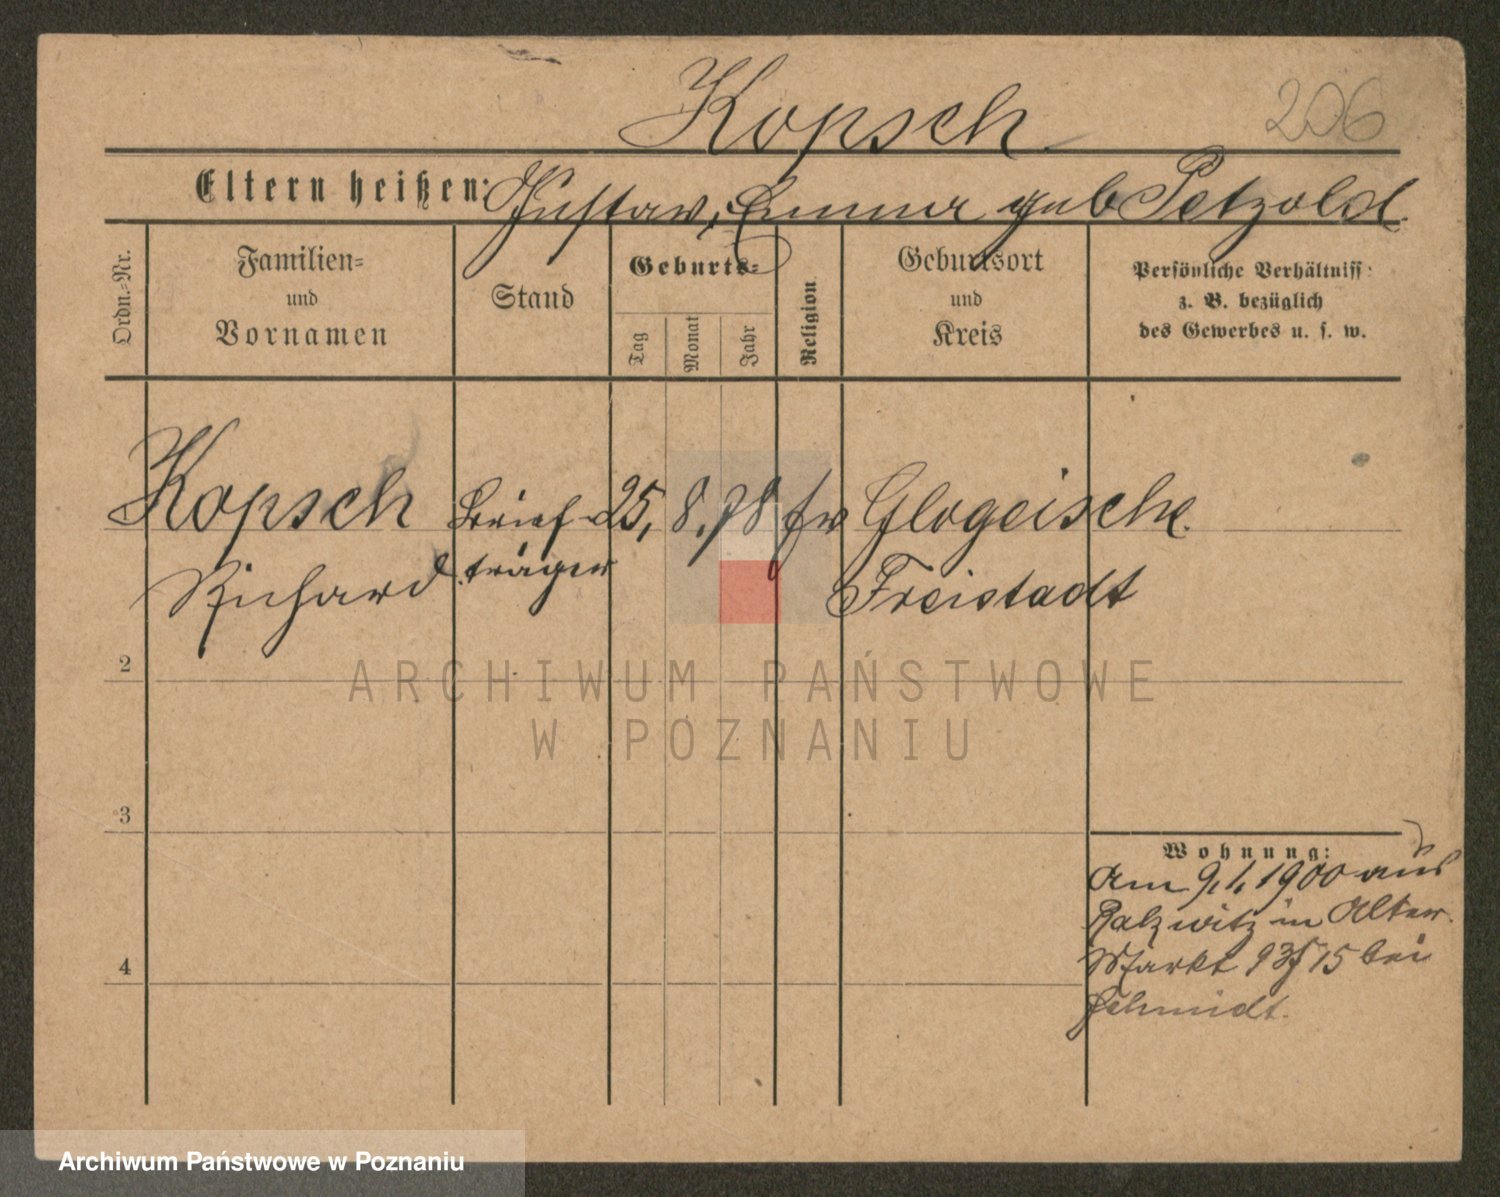 Kopsch 206
Eltern heißen: Gustav, Emma geb Petzold.
Ordn.-Nr.
Familien-
und
Vornamen
Stand
Geburts-
Tag
Monat
Jahr
Religion
Geburtsort
und
Kreis
Persönliche Verhältniss:
z. B. bezüglich
des Gewerbes u. s. w.
Kopsch Brief- 25. 8. 78 Glogeische.
Richard träger Freistadt
2
3
4
Wohnung:
Am 9.1.1900 aus
in Alter
Markt 93/15 bei
Schmidt.
ARCHIWUM PAŃSTWOWE
W POZNANIU
Archiwum Państwowe w Poznaniu